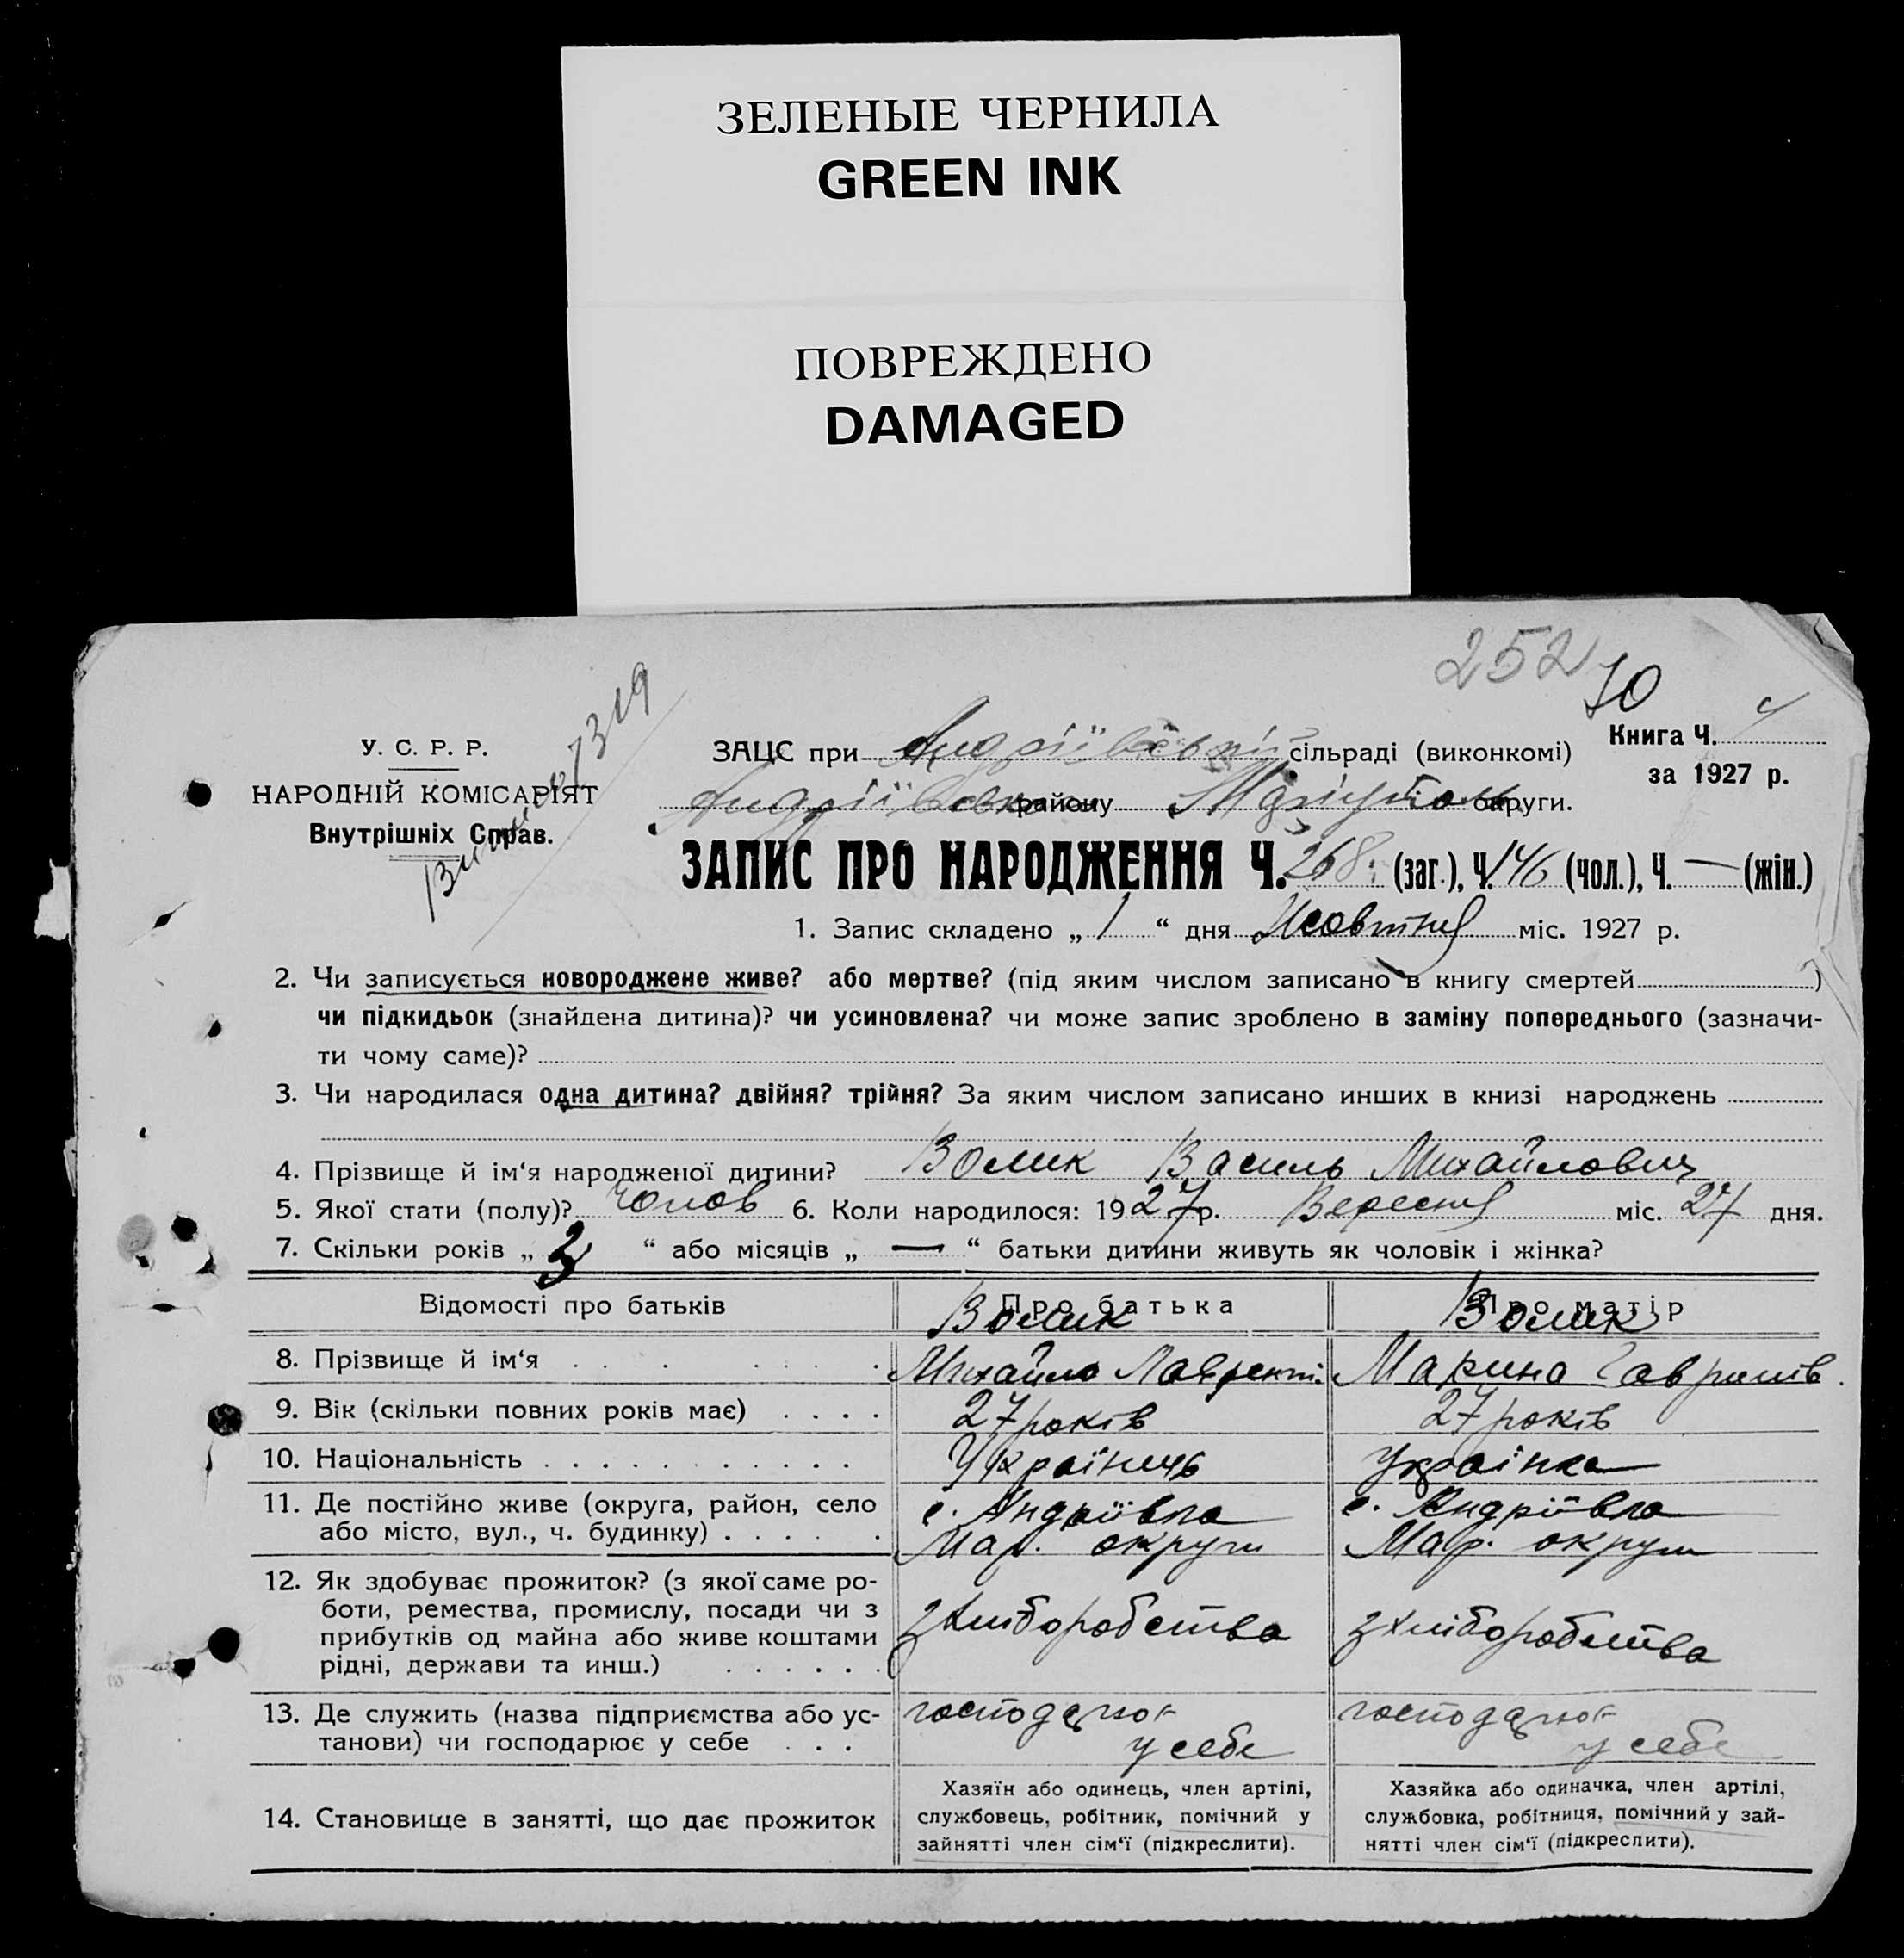 ЗЕЛЕНЫЕ ЧЕРНИЛА
GREEN INK
ПОВРЕЖДЕНО
DAMAGED
252
70
Книга Ч. 4
за 1927 р.
У. С. Р. Р.
НАРОДНІЙ КОМІСАРІЯТ
Внутрішніх Справ.
7319
ЗАЦС при Андріївській сільраді (виконкомі)
Андріївськ району Маріупол округи.
ЗАПИС ПРО НАРОДЖЕННЯ Ч. 268 (заг.), Ч. 146 (чол.), Ч. — (жін.)
1. Запис складено „ 1 “ дня Жовтня міс. 1927 р.
2. Чи записується новороджене живе? або мертве? (під яким числом записано в книгу смертей )
чи підкидьок (знайдена дитина)? чи усиновлена? чи може запис зроблено в заміну попереднього (зазначи-
ти чому саме)?
3. Чи народилася одна дитина? двійня? трійня? За яким числом записано инших в книзі народжень
4. Прізвище й ім‘я народженої дитини? Волик Василь Михайлович
5. Якої стати (полу)? Чолов 6. Коли народилося: 1927 р. Вересня міс. 27 дня.
7. Скільки років „ “ або місяців „ — “ батьки дитини живуть як чоловік і жінка?
Відомості про батьків Про батька Про матір
Волик Волик
8. Прізвище й ім‘я Михайло Лаврент. Марина Гаврилів.
9. Вік (скільки повних років має) 27 років 27 років
10. Національність Українець Українка
11. Де постійно живе (округа, район, село с. Андріївка с. Андріївка
або місто, вул., ч. будинку) Мар. округи Мар. округи
12. Як здобуває прожиток? (з якої саме ро-
боти, ремества, промислу, посади чи з з хліборобства з хліборобства
прибутків од майна або живе коштами
рідні, держави та инш.)
13. Де служить (назва підприємства або ус- господарює господарює
танови) чи господарює у себе у себе у себе
Хазяїн або одинець, член артілі, Хазяйка або одиначка, член артілі,
14. Становище в занятті, що дає прожиток службовець, робітник, помічний у службовка, робітниця, помічний у зай-
зайнятті член сім‘ї (підкреслити). нятті член сім‘ї (підкреслити).